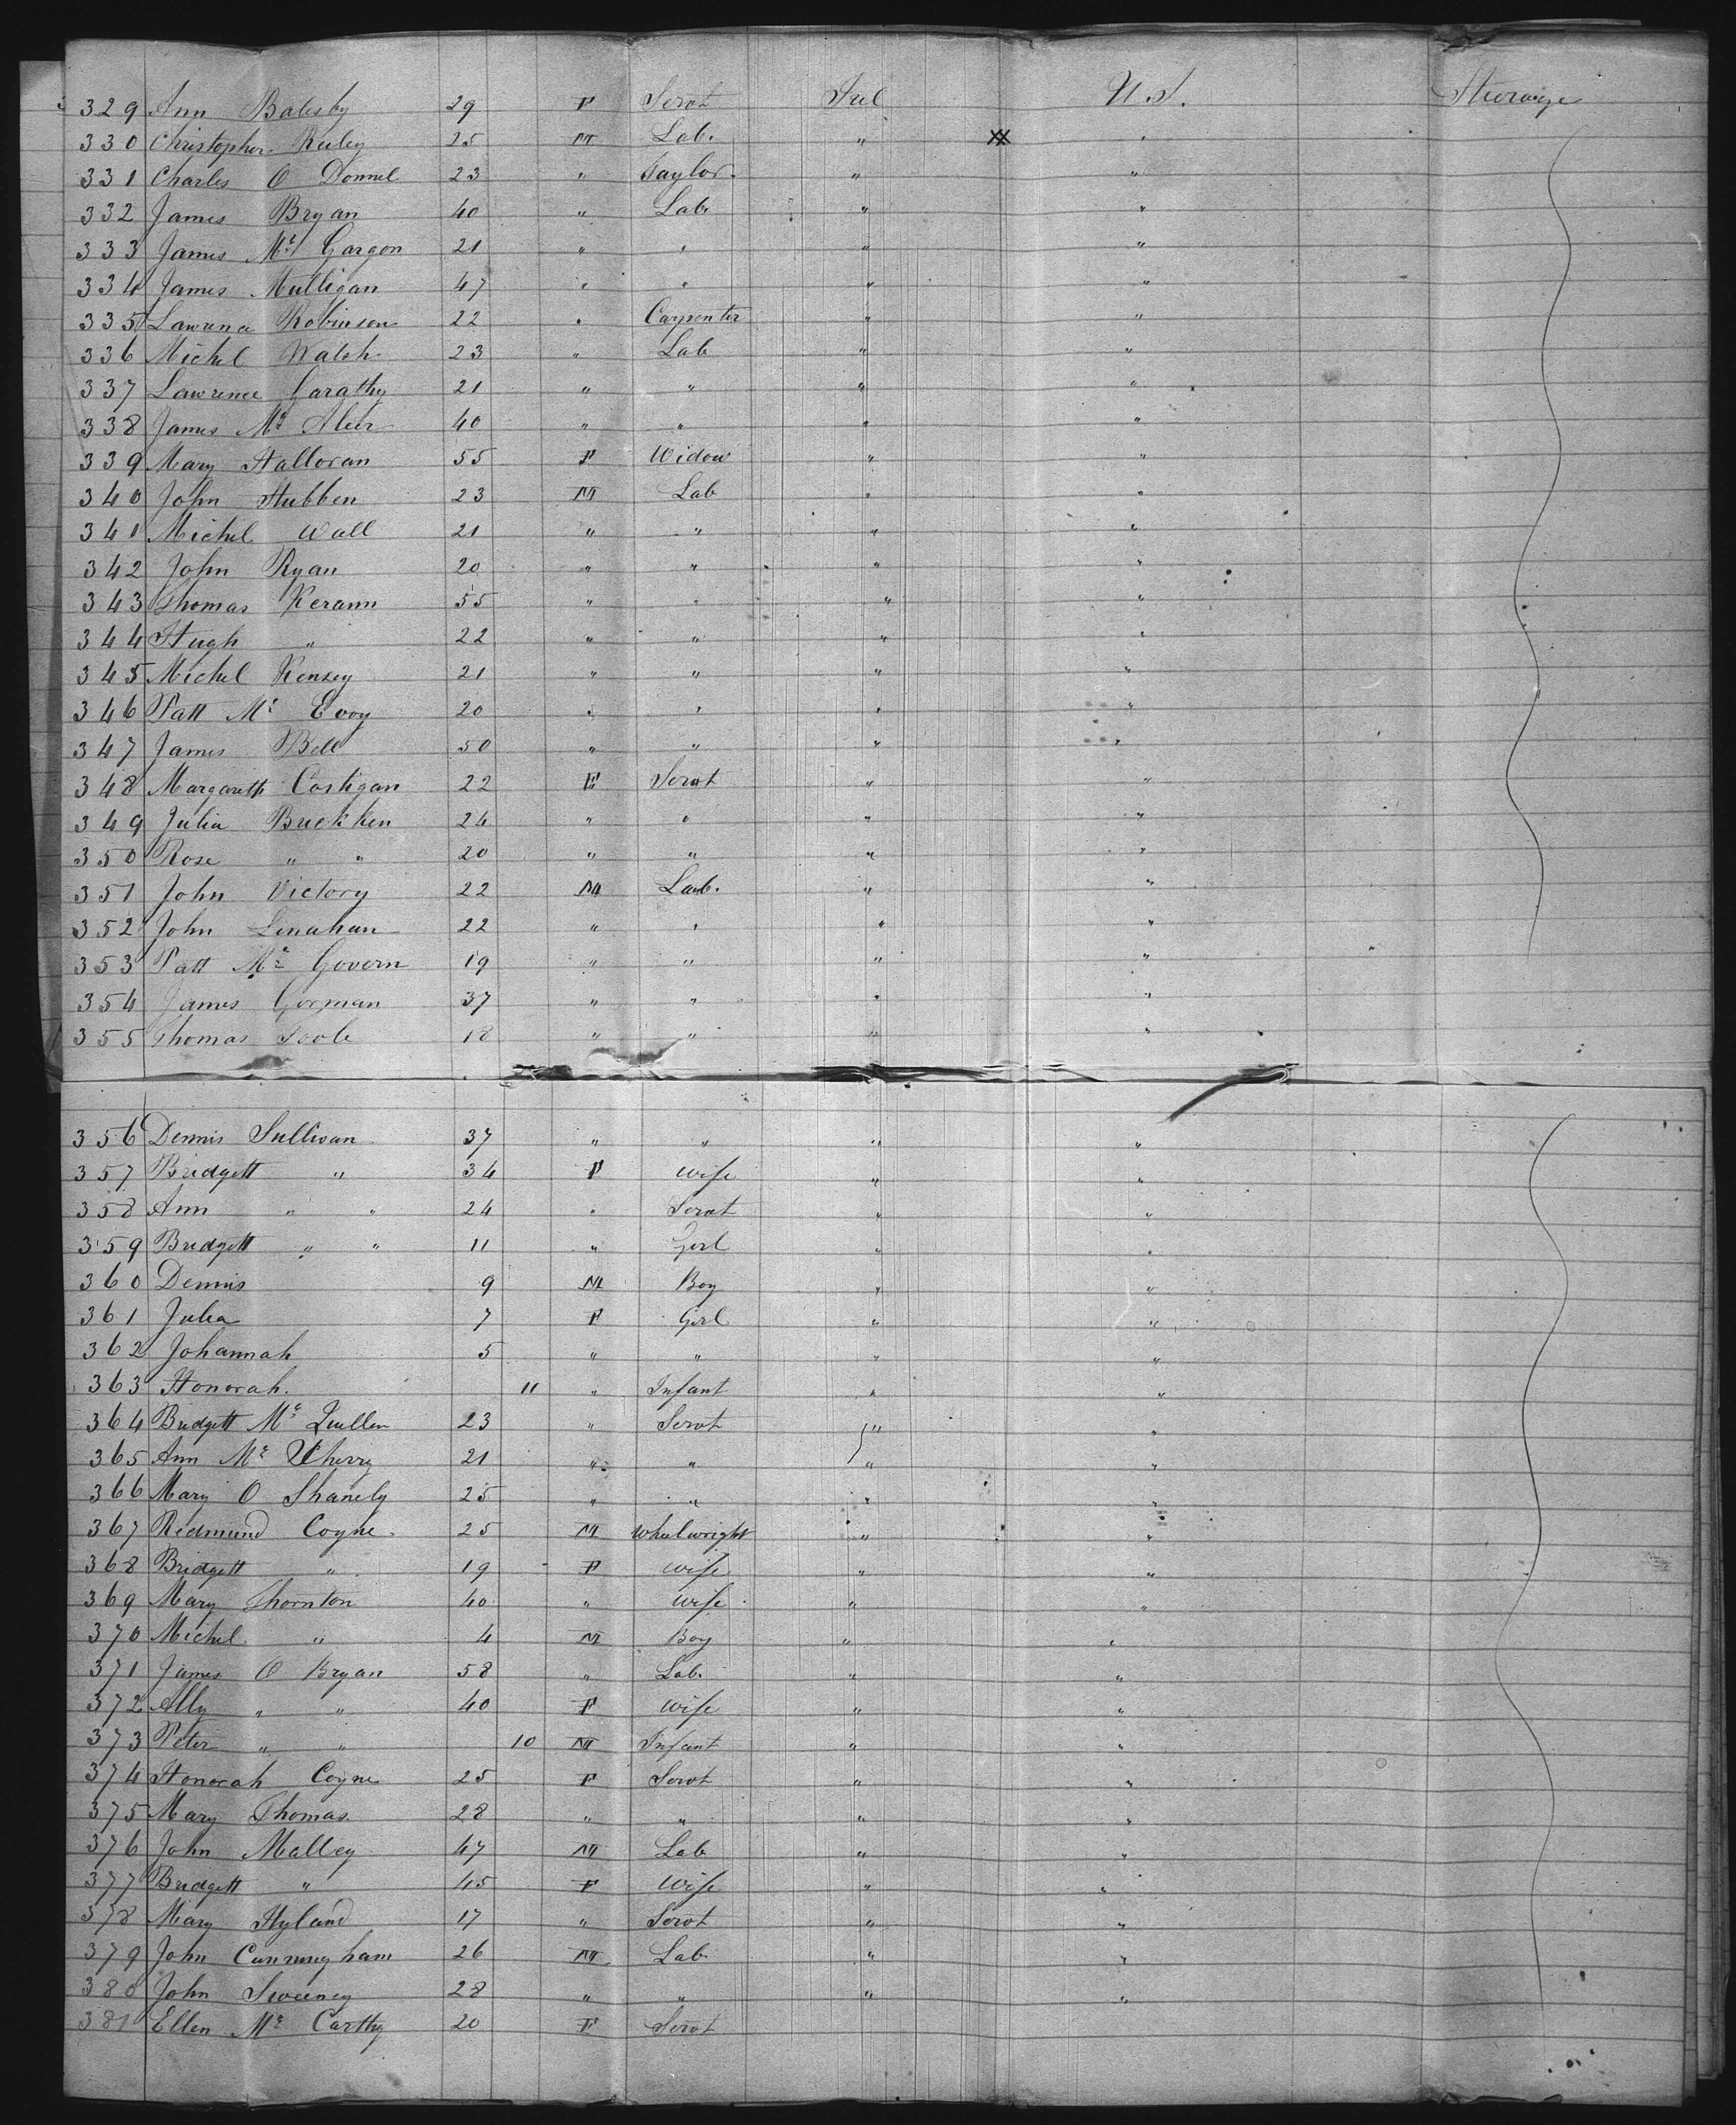 329 Ann Balesby 29 F Servt Irel U.S. Steerage
330 Christopher Reiley 25 M Lab. " "
331 Charles O Donnel 23 " Taylor " "
332 James Bryan 40 " Lab. " "
333 James Mc Gargon 21 " " " "
334 James Mulligan 47 " " " "
335 Lawrence Robinson 22 " Carpenter " "
336 Michel Walsh 23 " Lab " "
337 Lawrence Garathy 21 " " " "
338 James Mc Aleer 40 " " " "
339 Mary Halloran 55 F Widow " "
340 John Stubben 23 M Lab " "
341 Michel Wall 21 " " " "
342 John Ryan 20 " " " "
343 Thomas Kerann 55 " " " "
344 Hugh " 22 " " " "
345 Michel Kensey 21 " " " "
346 Patt Mc Evoy 20 " " " "
347 James Bell 50 " " " "
348 Margareth Costigan 22 F Servt " "
349 Julia Buckken 24 " " " "
350 Rose " " 20 " " " "
351 John Victory 22 M Lab. " "
352 John Linahan 22 " " " "
353 Patt Mc Govern 19 " " " "
354 James Gorman 37 " " " "
355 Thomas Toole 18 " " " "
356 Dennis Sullivan 37 " " " "
357 Bridgett " 34 F Wife " "
358 Ann " " 24 " Servt " "
359 Bridgett " " 11 " Girl " "
360 Dennis 9 M Boy " "
361 Julia 7 F Girl " "
362 Johannah 5 " " " "
363 Honorah. 11 " Infant " "
364 Bridgett Mc Quillen 23 " Servt " "
365 Ann Mc Cherry 21 " " " "
366 Mary O Shanely 25 " " " "
367 Redmund Coyne 25 M Wheelwright " "
368 Bridgett " 19 F Wife " "
369 Mary Thornton 40 " Wife " "
370 Michel " 4 M Boy " "
371 James O Bryan 58 " Lab. " "
372 Ally " " 40 F Wife " "
373 Peter " " 10 M Infant " "
374 Honorah Coyne 25 F Servt " "
375 Mary Thomas 28 " " " "
376 John Malley 47 M Lab " "
377 Bridgett " 45 F Wife " "
378 Mary Hyland 17 " Servt " "
379 John Cunningham 26 M Lab " "
380 John Sweeney 28 " " " "
381 Ellen Mc Carthy 20 F Servt